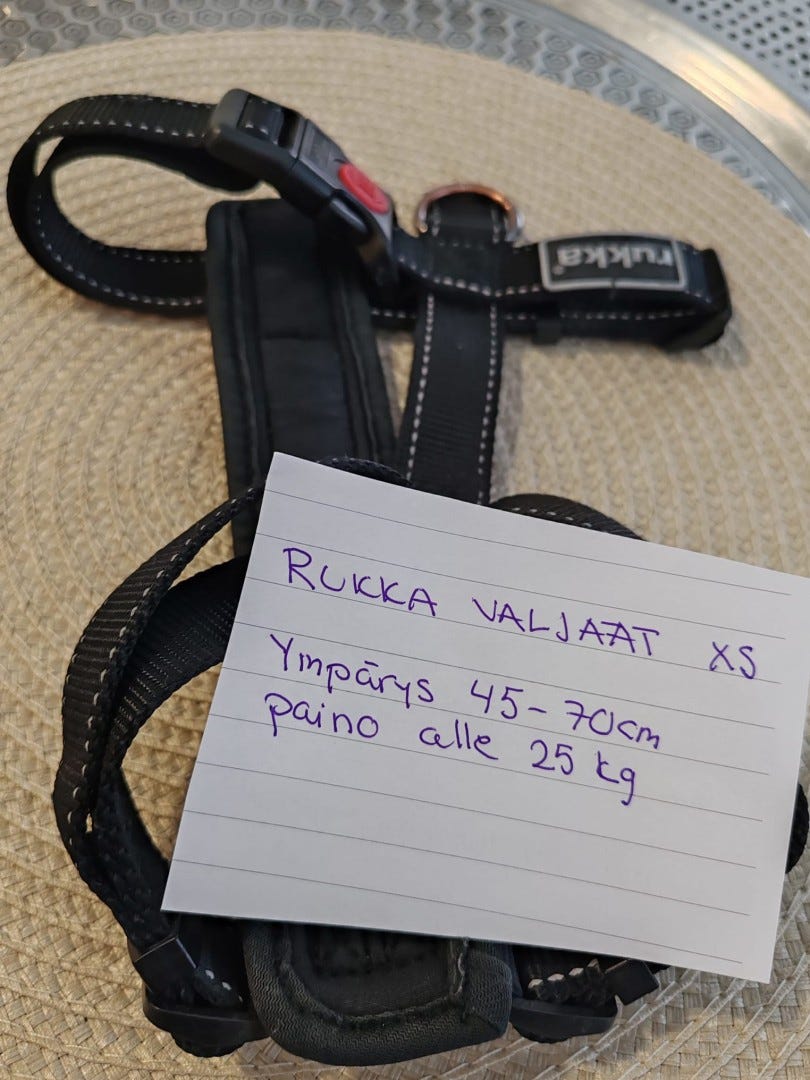 rukka
RUKKA VALJAAT XS
Ympärys 45-70cm
paino alle 25 kg